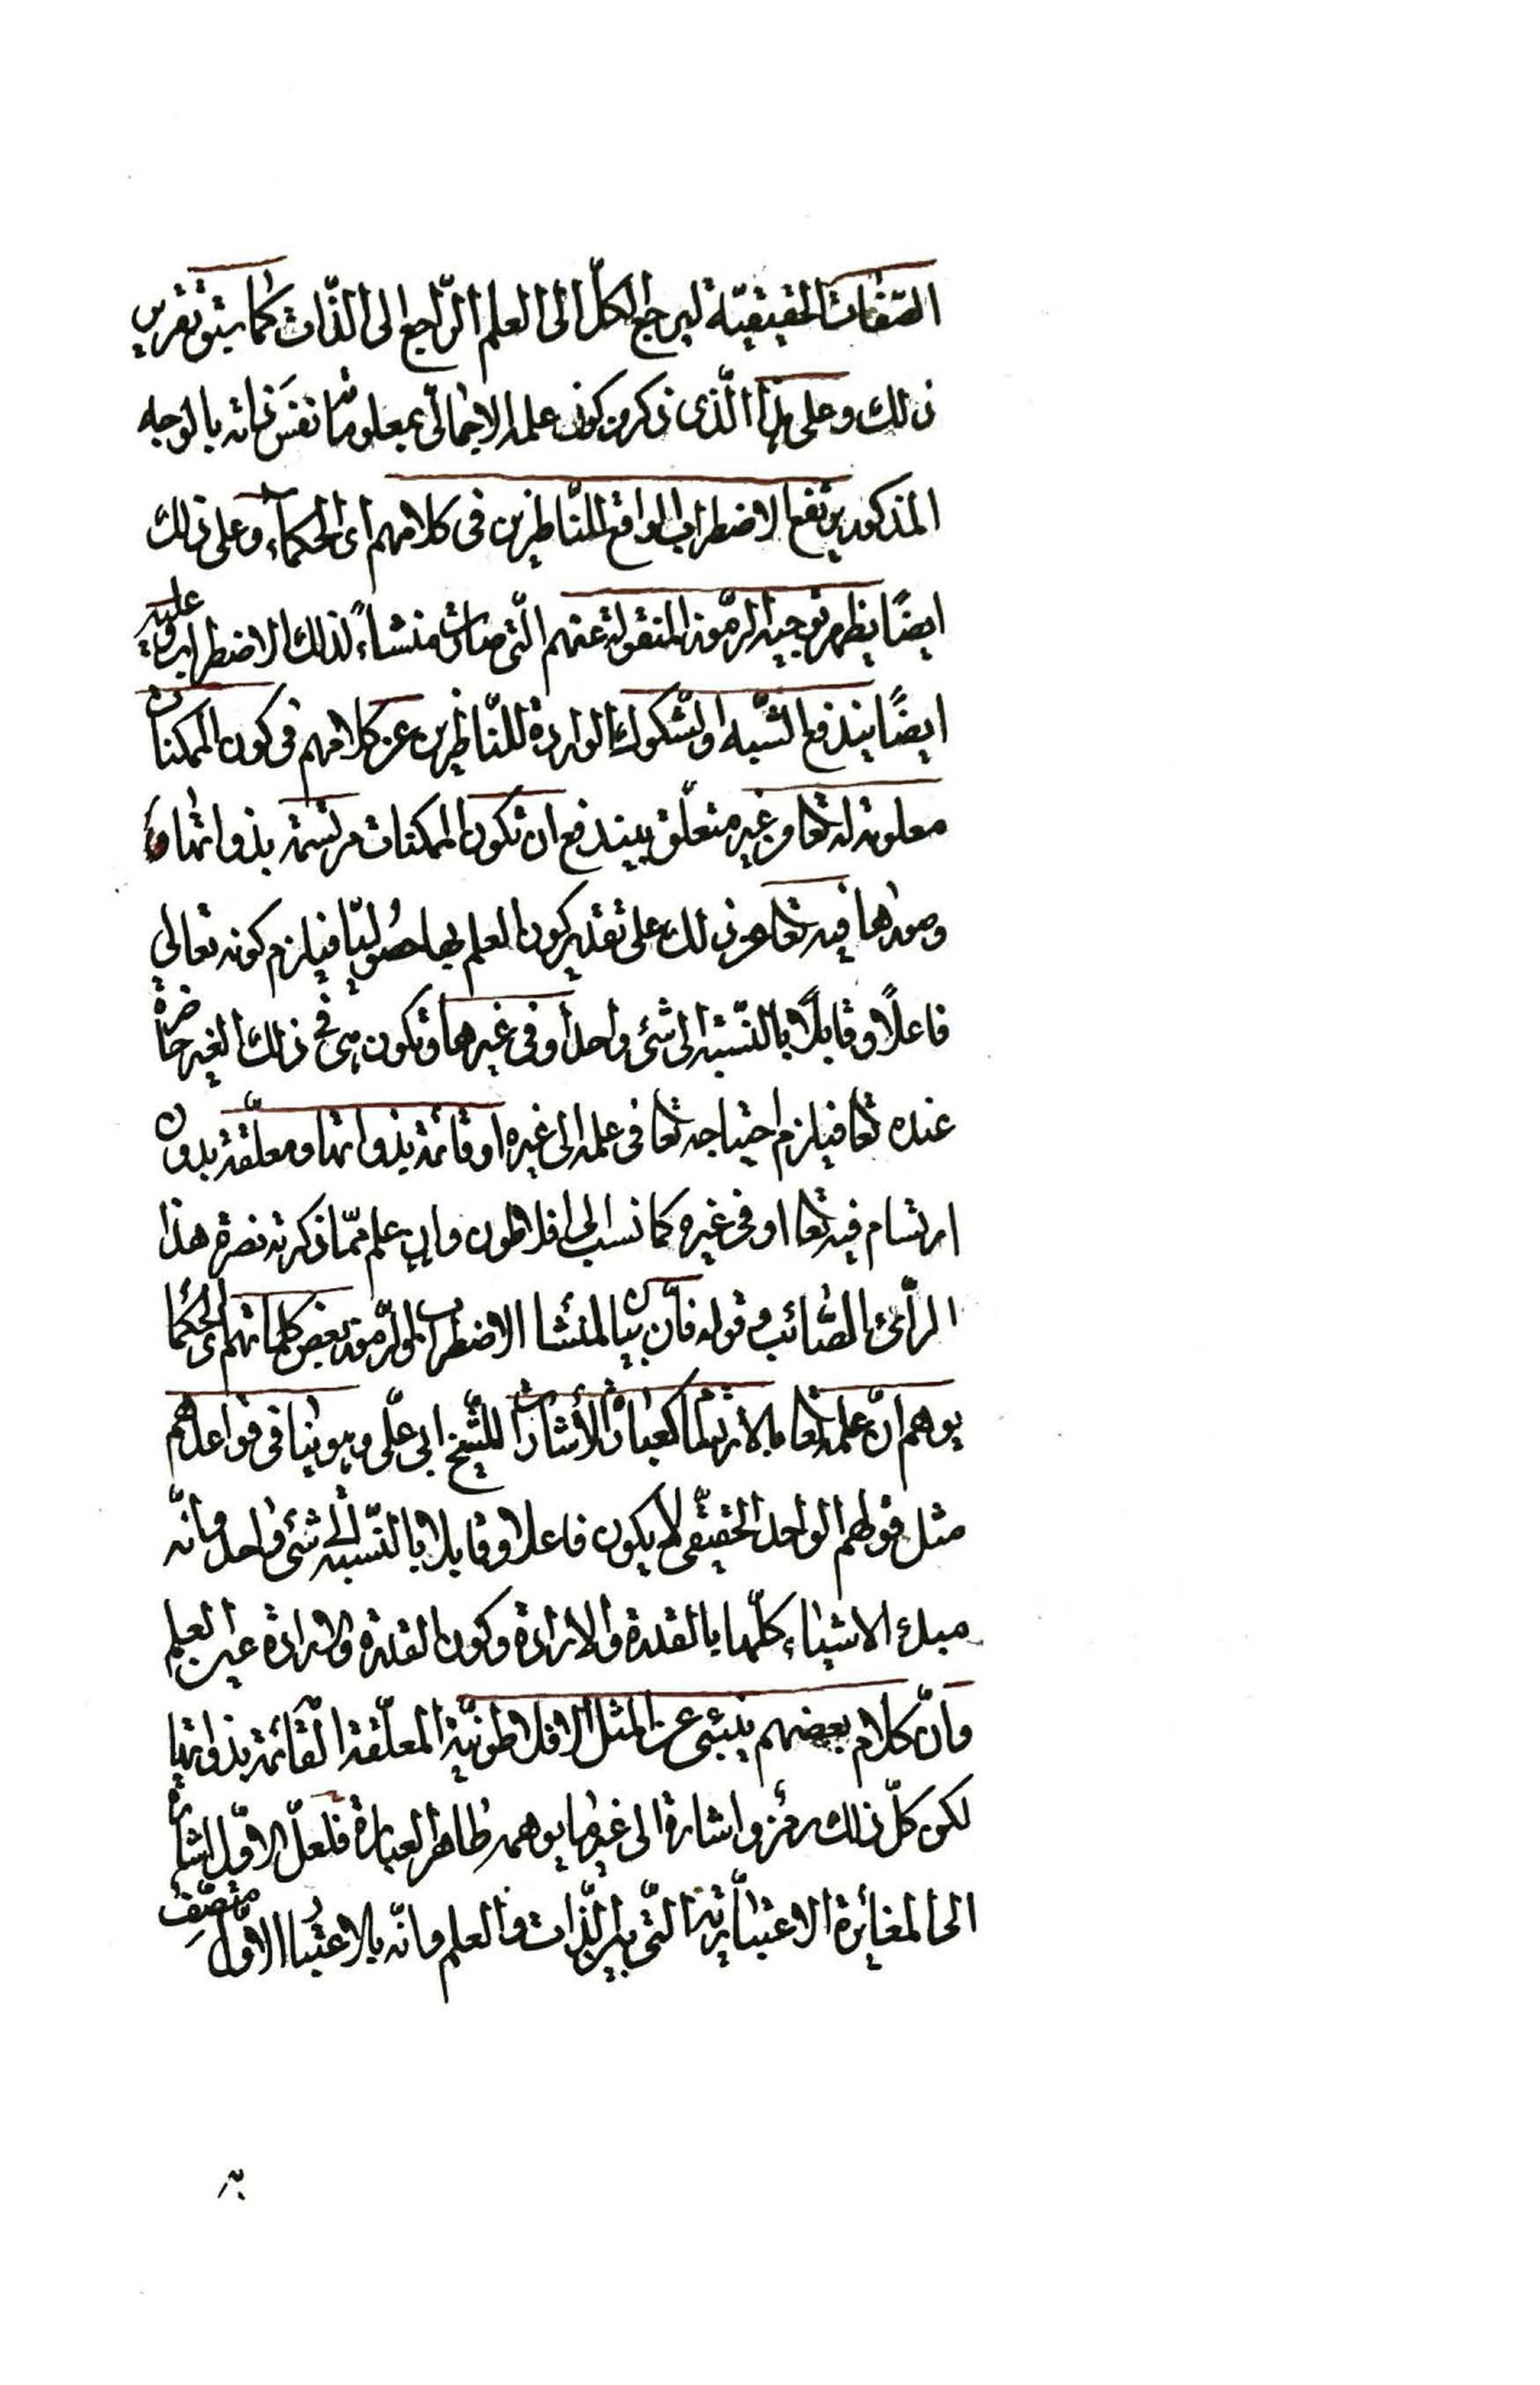 الصّفات الحقيقيّة ليرجع الكلّ الى العلم الرّاجع الى الذّات كما سيق تقرير
ذلك وعلى هذا الّذى ذكر من كون علمه الاجمالّى بمعلوماته نفس ذاته بالوجه
المذكور يرتفع الاضطراب الواقع للنّاظرين فى كلامهم اى الحكماء وعلى ذلك
ايضًا يظهر توجيه الرّموز المنقولة عنهم الّتى صارت منشاءً لذلك الاضطراب وعليه
ايضًا يندفع الشّبه والشّكوك الواردة للنّاظرين عن كلامهم فى كون الممكنات
معلومة له تعا وغير متعلّق بيندفع ان تكون الممكنات مرتسمة بذواتها
وصورها فيه تعا عن ذلك على تقدير كون العلم بها حصوليّا فيلزم كونه تعالى
فاعلًا وقابلًا بالنّسبة الى شئ واحد او فى غيرها وتكون هى فى ذلك الغير حاضرة
عنده تعا فيلزم احتياجه تعا فى علمه الى غيره او قائمة بذواتها ومعلّقة بدون
ارتسام فيه تعا او فى غيره كما نسب الى افلاطون وان علم ممّا ذكرته نصرة هذا
الرّأى الصّائب وقوله فانّ بيان لمنشأ الاضطراب والرّموز بعض كلماتهم اى الحكما
يوهم انّ علمه تعا بالارتسام كعبارة الأشارات للشّيخ ابى علّى وهو ينافى قواعدهم
مثل قولهم الواحد الحقيقّى لا يكون فاعلا وقابلا بالنّسبة الى شئ واحد وانّه
مبدء الاشياء كلّها بالقدرة والارادة وكون القدرة والارادة عين العلم
وانّ كلام بعضهم ينبئى عن المثل الافلاطونيّة المعلّقة القائمة بذواتها
لكن كلّ ذلك رمز واشارة الى غير ما يوهمه ظاهر العبارة فلعلّ الاوّل اشارة
الى المغائرة الاعتباريّة الّتى بين الذّات والعلم وانّه بالاعتبار الاوّل متّصف
به